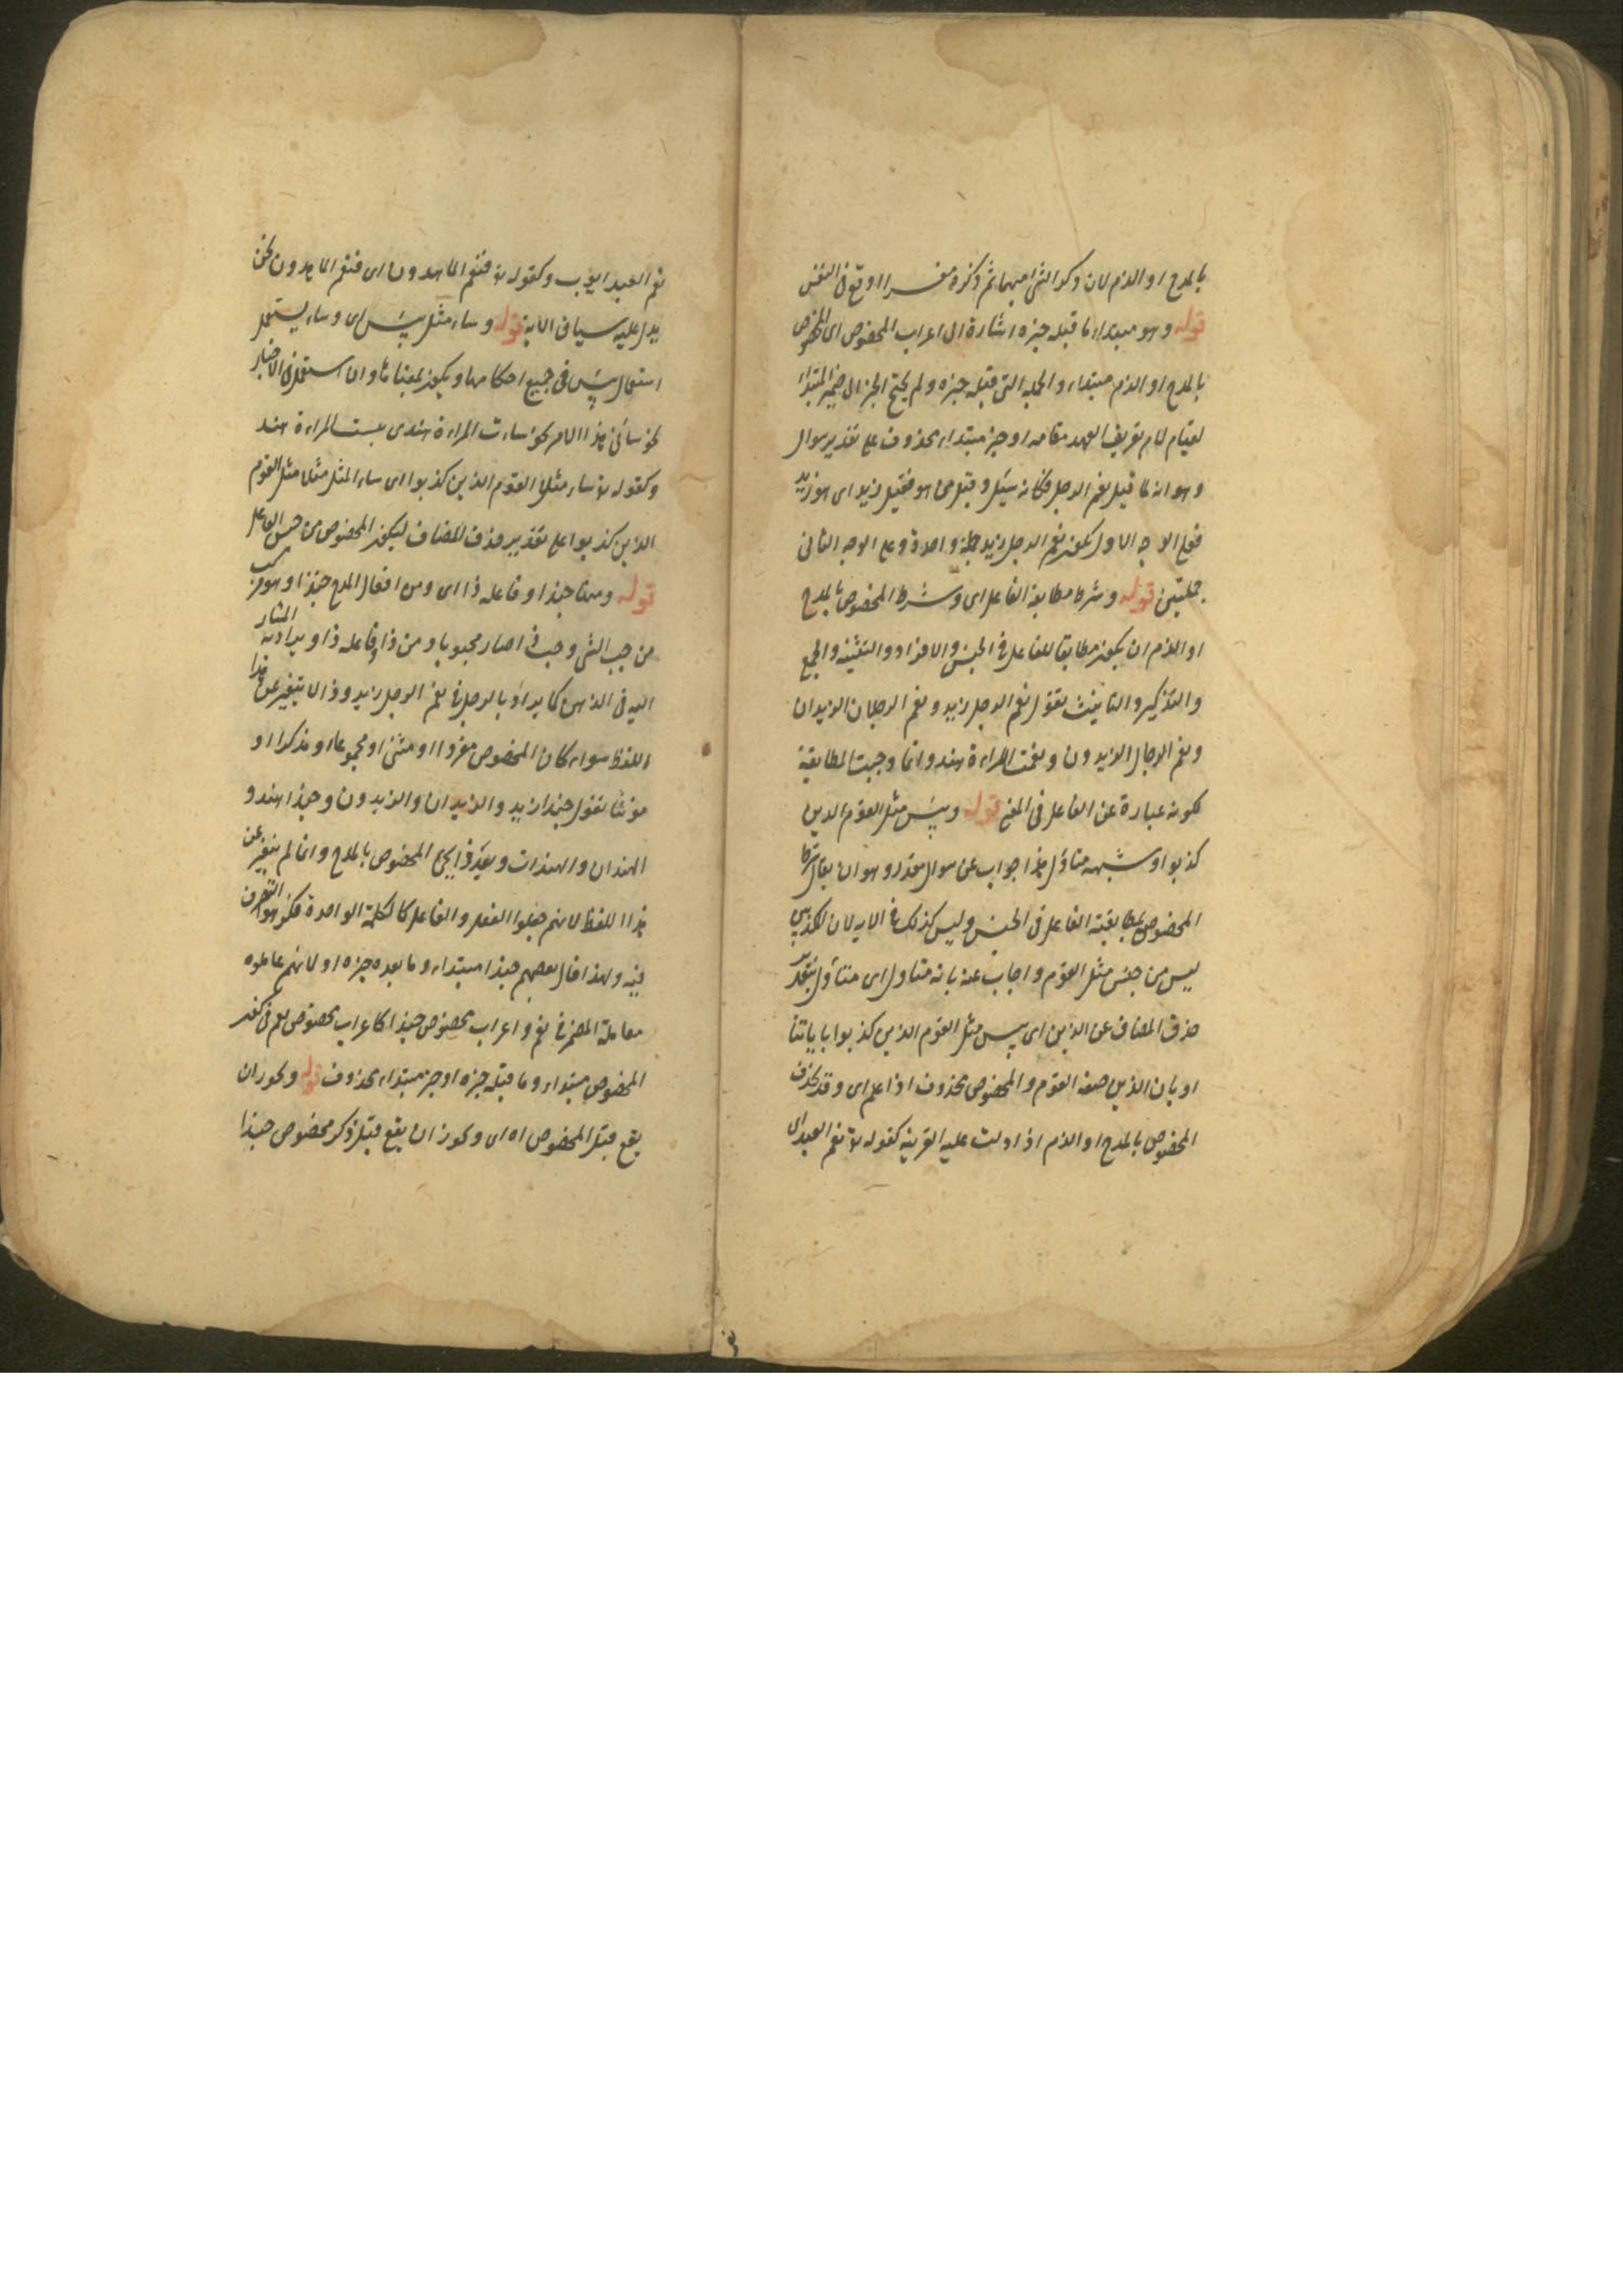 بالمدح او الذم لان ذكر الشئ مبهما ثم ذكره مفسرا اوقع فى النفس
قوله وهو مبتداء ما قبله خبره اشارة الى اعراب المخصوص اى المخصوص
بالمدح او الذم مبتداء والجملة التى قبله خبره ولم يحتج الخبر الى ضمير المبتداء
لقيام لام تعريف العهد مقامه او خبر مبتداء محذوف على تقدير سوال
وهو انه لما قيل نعم الرجل فكانه سئل وقيل من هو فقيل زيد اى هو زيد
فعلى الوجه الاول يكون نعم الرجل زيد جملة واحدة وعلى الوجه الثانى
جملتين قوله وشرط مطابقة الفاعل اى وشرط المخصوص بالمدح
او الذم ان يكون مطابقا للفاعل فى الجنس والافراد والتثنية والجمع
والتذكير والتانيث تقول نعم الرجل زيد ونعم الرجلان الزيدان
ونعم الرجال الزيدون ونعمت المراءة هند وانما وجبت المطابقة
لكونه عبارة عن الفاعل فى المعنى قوله وبئس مثل القوم الذين
كذبوا وشبهه متاول هذا جواب عن سوال مقدر وهو ان يقال شرط
المخصوص مطابقة الفاعل فى الجنس وليس كذلك فى الاية لان المكذبين
ليس من جنس مثل القوم واجاب عنه بانه متاول اى متأول بتقدير
حذف المضاف عن الذين اى بئس مثل القوم الذين كذبوا باياتنا
او بان الذين صفة القوم والمخصوص محذوف اذا علم اى وقد يحذف
المخصوص بالمدح او الذم اذا دلت عليه القرينة كقوله تع نعم العبد اى
نعم العبد ايوب وكقوله تع فنعم الماهدون اى فنعم الماهدون نحن
يدل عليه سياق الاية قوله وساء مثل بئس اى وساء يستعمل
استعمال بئس فى جميع احكامها ويكون بمعناها وان استعمل فى الاخبار
نحو سائنى هذا الامر نحو ساءت المراءة هند اى بئست المراءة هند
وكقوله تع ساء مثلا القوم الذين كذبوا اى ساء المثل مثلا مثل القوم
الذين كذبوا على تقدير حذف المضاف ليكون المخصوص من جنس الفاعل
قوله ومنها حبذا وفاعله ذا اى ومن افعال المدح حبذا وهو مركب
من حب الشئ وحب اذا صار محبوبا ومن ذا وفاعله ذا ويراد به المشار
اليه فى الذهن كما يراد بالرجل فى نعم الرجل زيد وذا لا يتغير عن هذا
اللفظ سواء كان المخصوص مفردا او مثنى او مجموعا او مذكرا او
مونثا تقول حبذا زيد والزيدان والزيدون وحبذا هند و
الهندان والهندات وبعد ذا يجئ المخصوص بالمدح وانما لم يتغير عن
هذا اللفظ لانهم جعلوا الفعل والفاعل كالكلمة الواحدة فكرهوا التصرف
فيه ولهذا قال بعضهم حبذا مبتداء وما بعده خبره او لانهم عاملوه
معاملة المضمر فى نعم واعراب مخصوص حبذا كاعراب مخصوص نعم فى كون
المخصوص مبتداء وما قبله خبره او خبر مبتداء محذوف قوله ويجوز ان
يقع قبل المخصوص اه اى ويجوز ان يقع قبل ذكر مخصوص حبذا